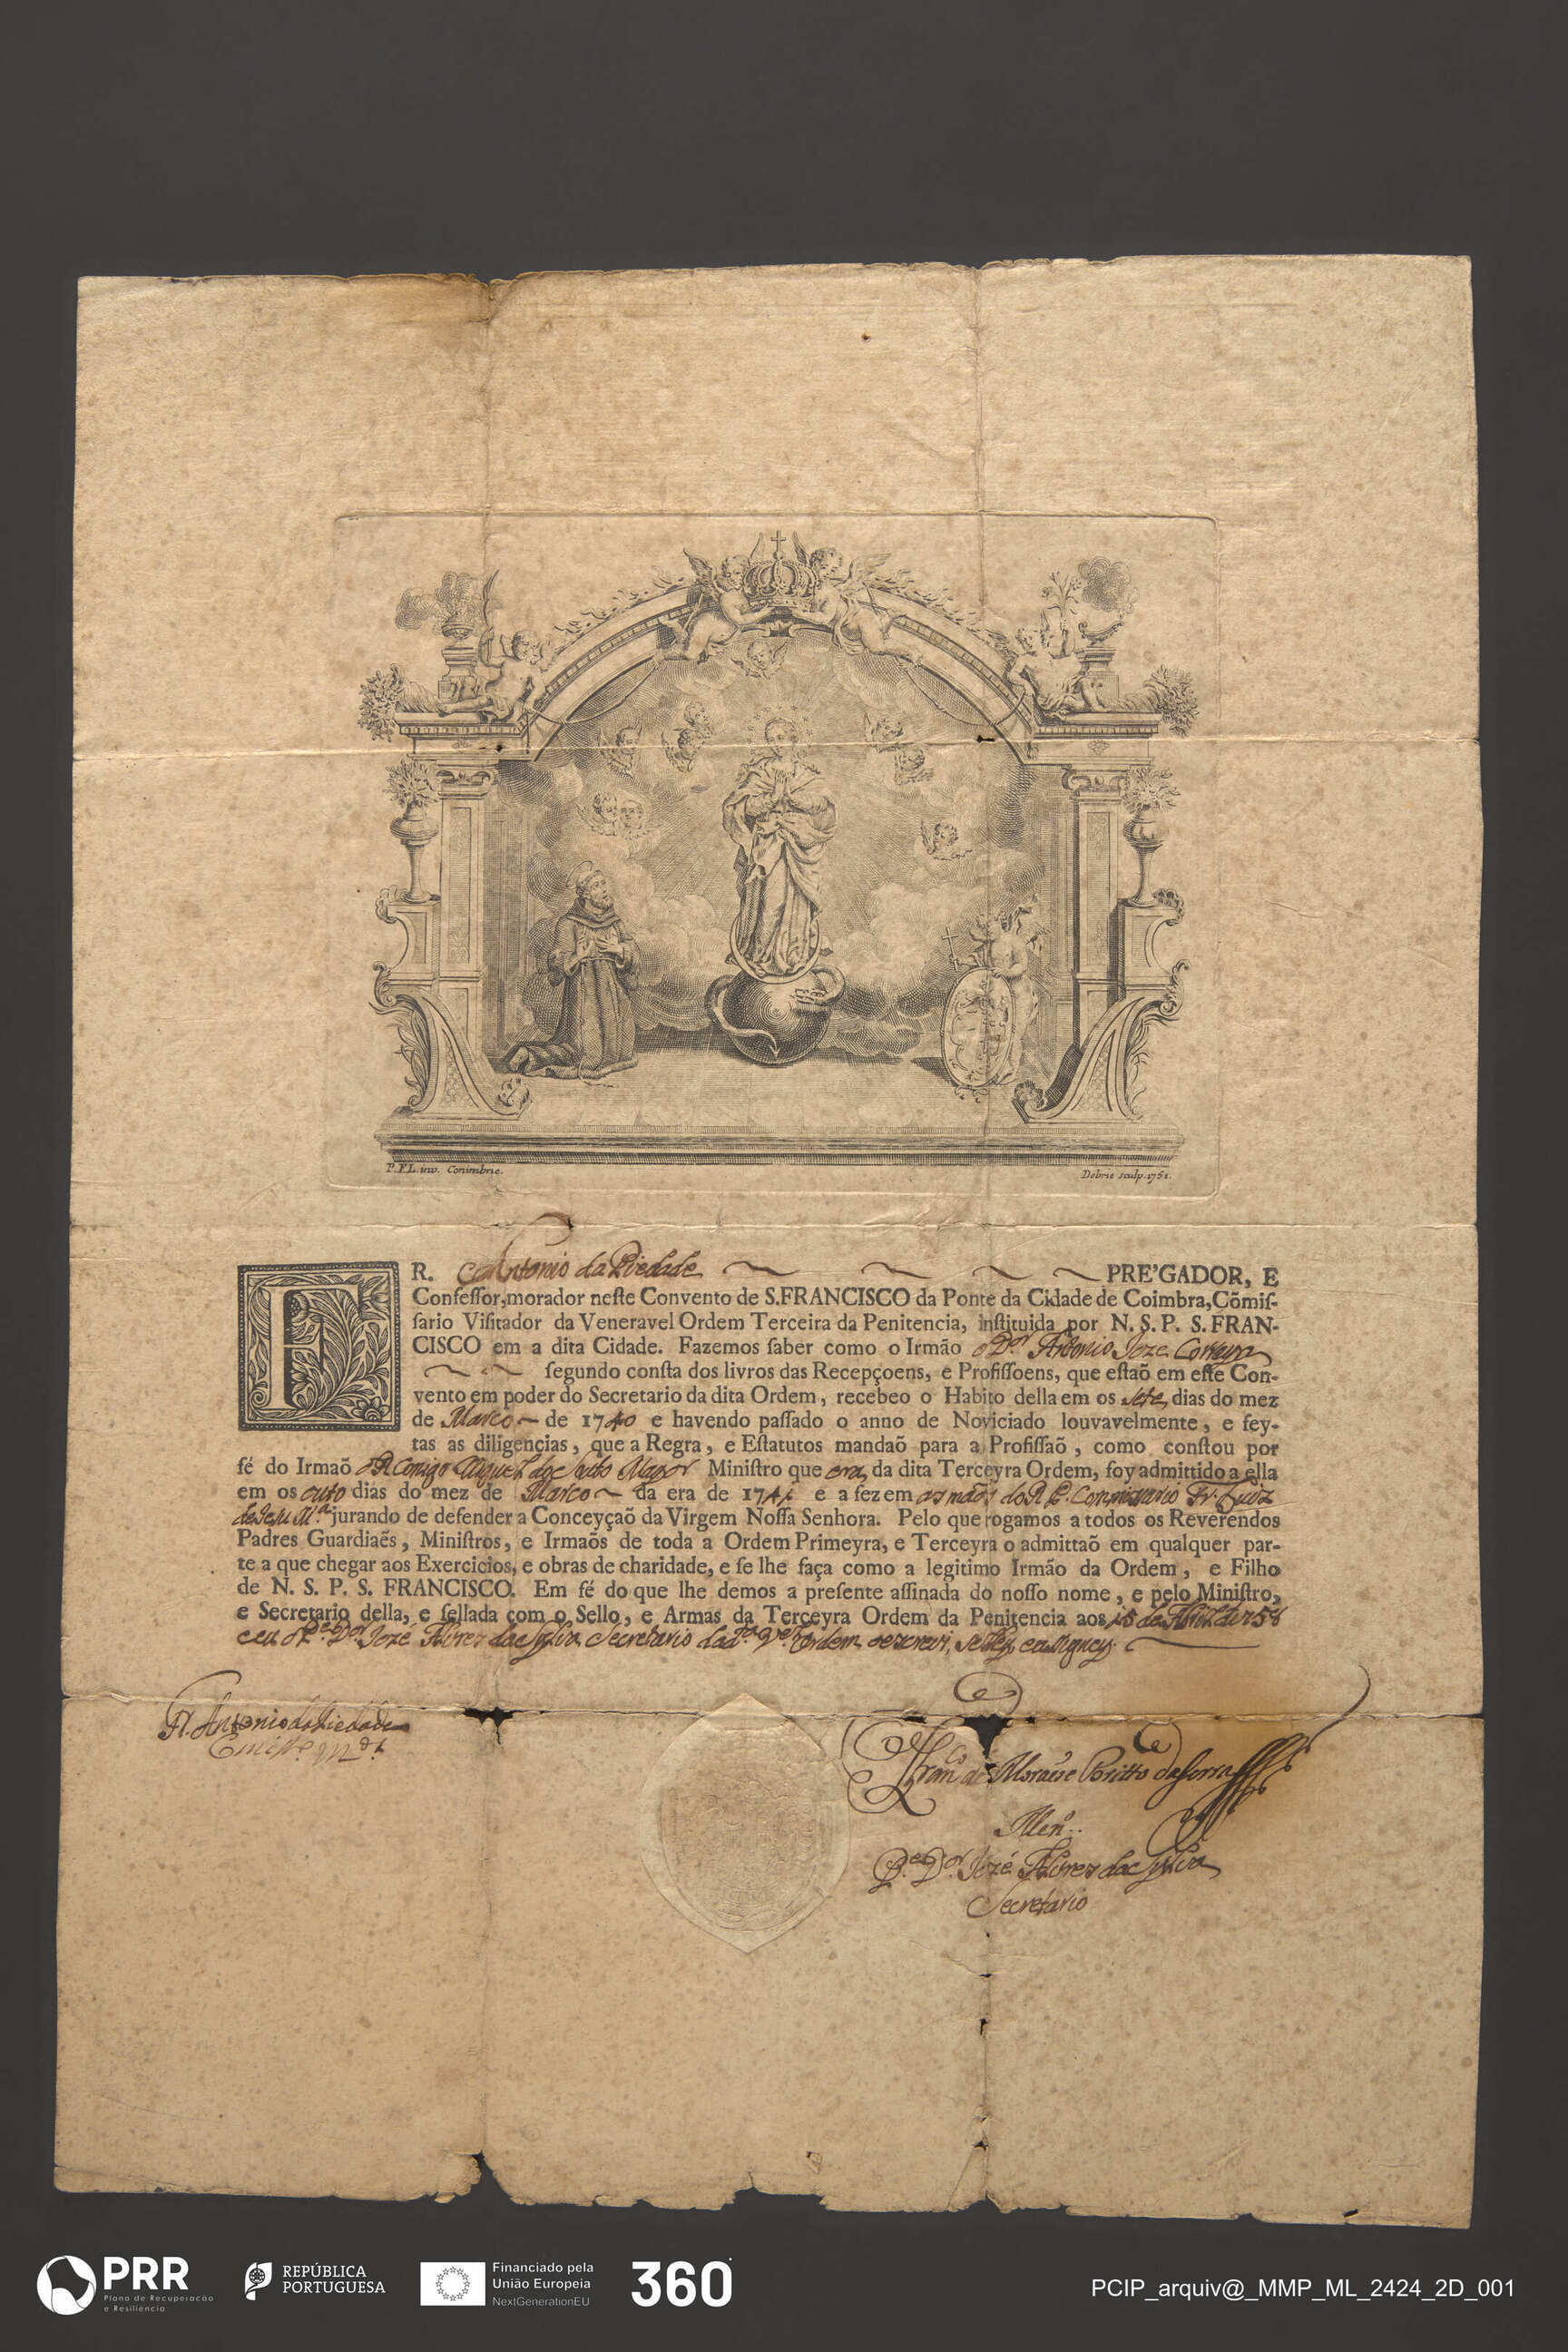 P.F.L. inv. Conimbric.
Debrie sculp. 1751.
FR. Antonio da Piedade PRE'GADOR, E
Confeſſor,morador neſte Convento de S.FRANCISCO da Ponte da Cidade de Coimbra,Cõmiſ-
ſario Viſitador da Veneravel Ordem Terceira da Penitencia, inſtituida por N. S. P. S. FRAN-
CISCO em a dita Cidade. Fazemos ſaber como o Irmão o Dor Antonio Joze Correya
ſegundo conſta dos livros das Recepçoens, e Profiſſoens, que eſtaõ em eſte Con-
vento em poder do Secretario da dita Ordem, recebeo o Habito della em os ſete dias do mez
de Março de 1740 e havendo paſſado o anno de Noviciado louvavelmente, e fey-
tas as diligencias, que a Regra, e Eſtatutos mandaõ para a Profiſſaõ, como conſtou por
fé do Irmaõ o R. Conigo Miguel de Souto Mayor Miniſtro que era da dita Terceyra Ordem, foy admittido a ella
em os outo dias do mez de Março da era de 1741 e a fez em as mãos do R. P. Commissario Fr. Luiz
de Jesu Ma. jurando de defender a Conceyçaõ da Virgem Noſſa Senhora. Pelo que rogamos a todos os Reverendos
Padres Guardiaẽs, Miniſtros, e Irmaõs de toda a Ordem Primeyra, e Terceyra o admittaõ em qualquer par-
te a que chegar aos Exercicios, e obras de charidade, e ſe lhe faça como a legitimo Irmão da Ordem, e Filho
de N. S. P. S. FRANCISCO. Em fé do que lhe demos a preſente aſſinada do noſſo nome, e pelo Miniſtro,
e Secretario della, e ſellada com o Sello, e Armas da Terceyra Ordem da Penitencia aos 15 de Abril de 1758
e eu o Pe. Dor Jozé Flores da Sylva Secretario da da. Ve. Ordem o escrevi, seley e aſigney.
Fr. Antonio da Piedade
Franco de Moraes e Britto da Serra
Men.
Pe. Dor. Jozé Flores da Sylva
Secretario
PRR
Plano de Recuperação
e Resiliência
REPÚBLICA
PORTUGUESA
Financiado pela
União Europeia
NextGenerationEU
360
PCIP_arquiv@_MMP_ML_2424_2D_001